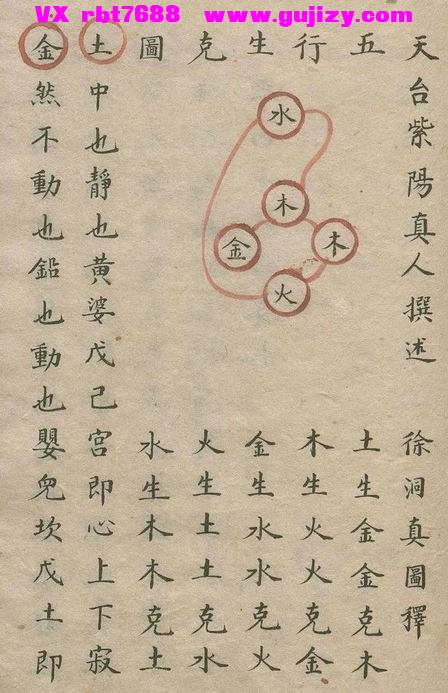 VX rbt7688 www.gujizy.com
天台紫陽真人撰述 徐洞真圖釋
五行生克圖
水
木
金
木
火
土生金金克木
木生火火克金
金生水水克火
火生土土克水
水生木木克土
土中也靜也黃婆戊己宮即心上下寂
金然不動也鉛也動也嬰兒坎戊土即